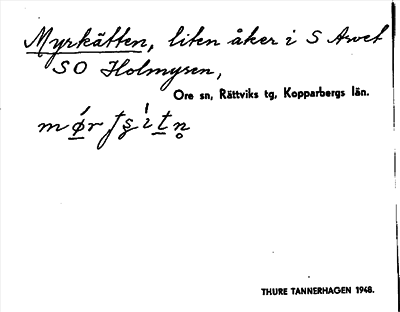 Myrkätten, liten åker i S Arvet
SO Holmyren,
Ore sn, Rättviks tg, Kopparbergs län.
THURE TANNERHAGEN 1948.